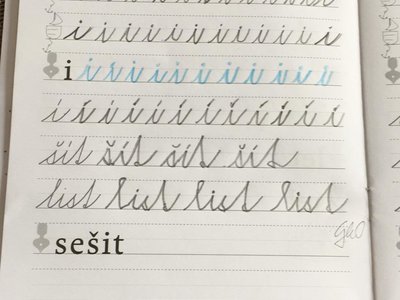 i i i i i i i i i i i i
i i i i i i i i i i i i
i í í í í í í í í í í í
šít šít šít šít
list list list list
sešit